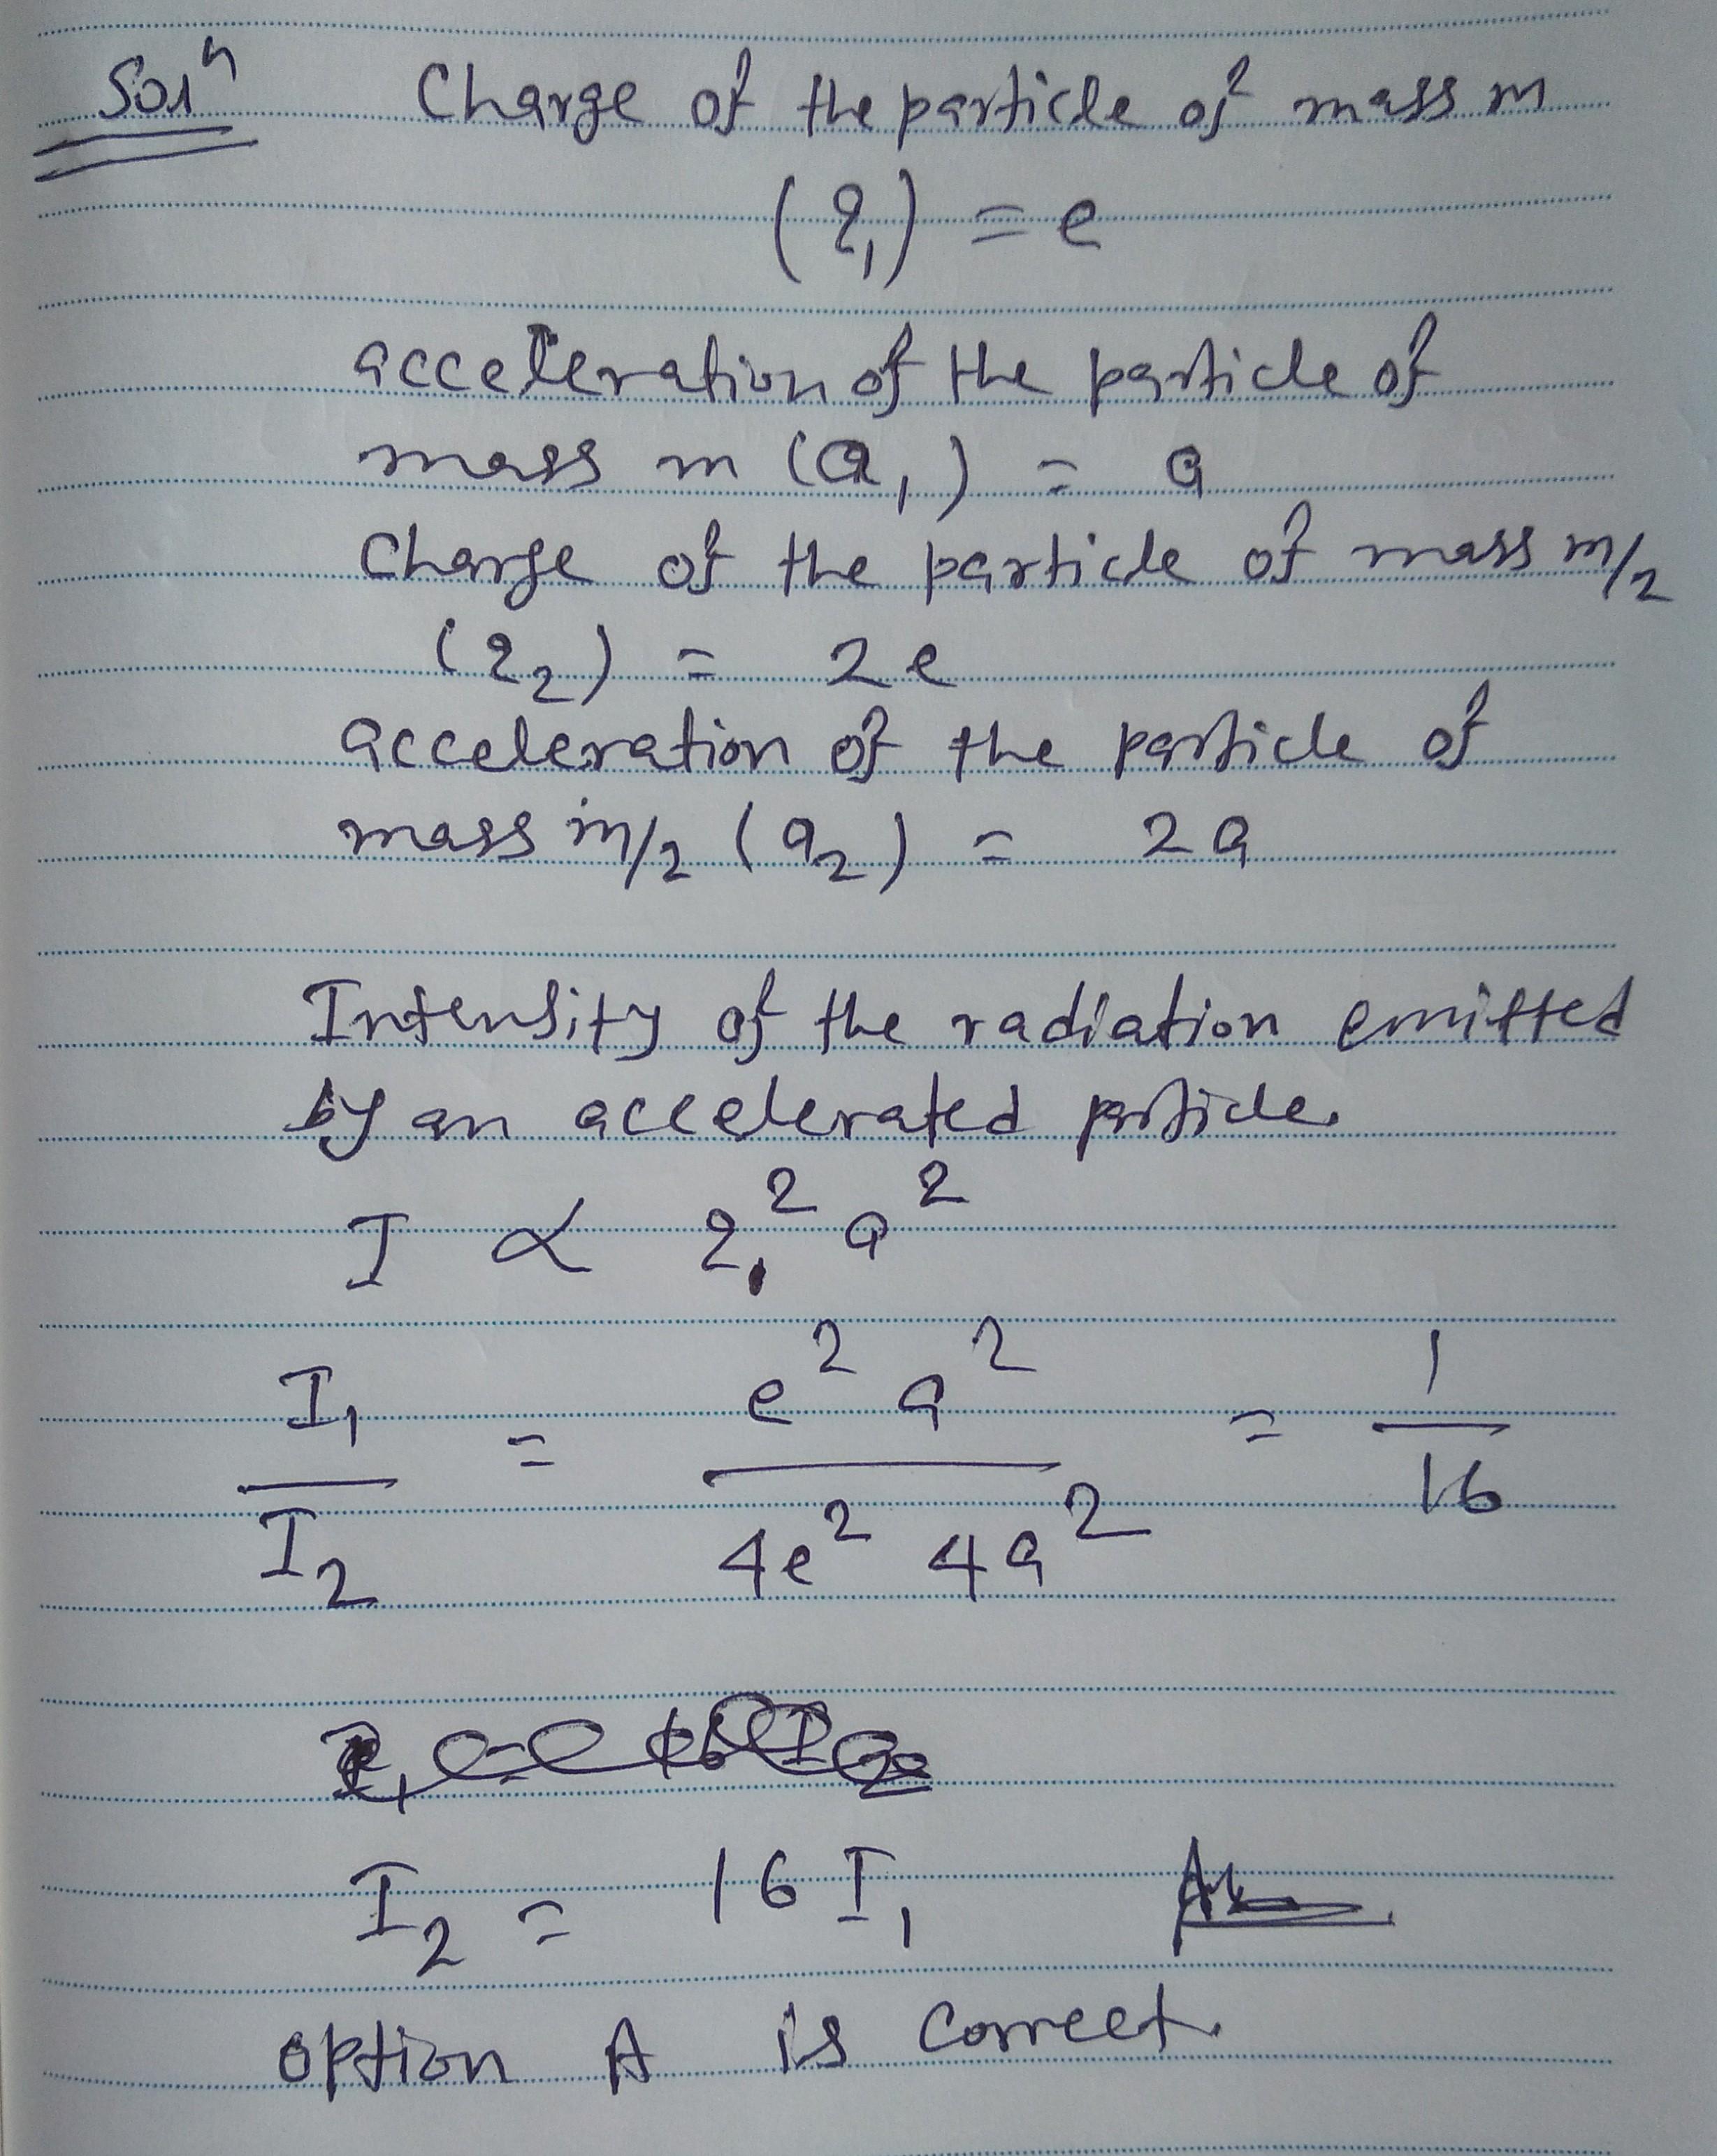 Solⁿ Charge of the particle of mass m
(q₁) = e
acceleration of the particle of
mass m (a₁) = a
Charge of the particle of mass m/2
(q₂) = 2e
acceleration of the particle of
mass m/2 (a₂) = 2a
Intensity of the radiation emitted
by an accelerated particle
I ∝ q² a²
I₁/I₂ = e² a² / 4e² 4a² = 1/16
I₂ = 16 I₁ Ans
option A is correct.